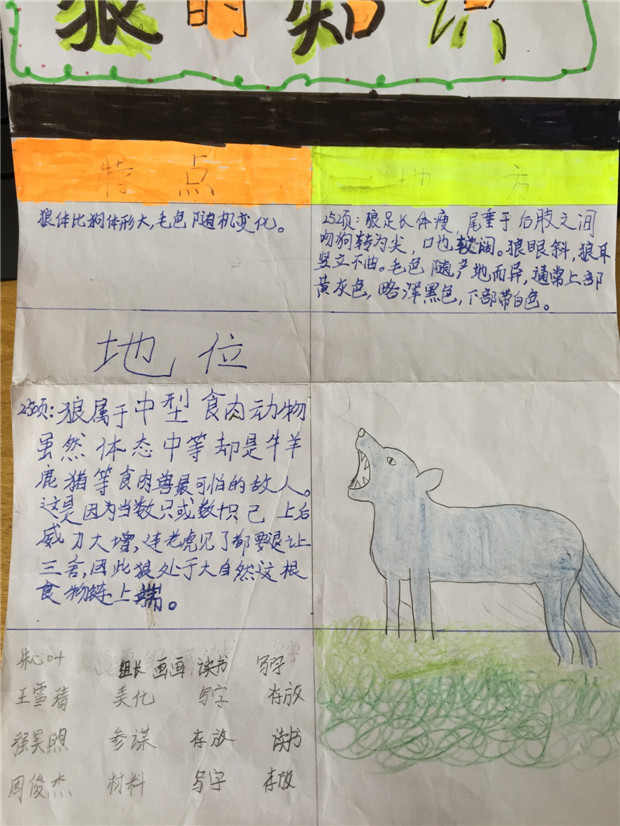 狼的知识
特点
地方
狼体比狗体形大,毛色随机变化。
252项:狼足长体瘦,尾垂于后肢之间
吻狗转为尖,口也较阔。狼眼斜,狼耳
竖立不曲。毛色随产地而异,通常上部
黄灰色,略浑黑色,下部带白色。
地位
250项:狼属于中型食肉动物
虽然体态中等却是牛羊
鹿猪等食肉兽最可怕的敌人。
这是因为当数只或数十只己上后
威力大增,连老虎见了都要退让
三舍,因此狼处于大自然这根
食物链上端。
组长 画画 读书 写字
王雪 美化 写字 存放
昊照 参谋 存放 读书
周俊杰 材料 写字 存放